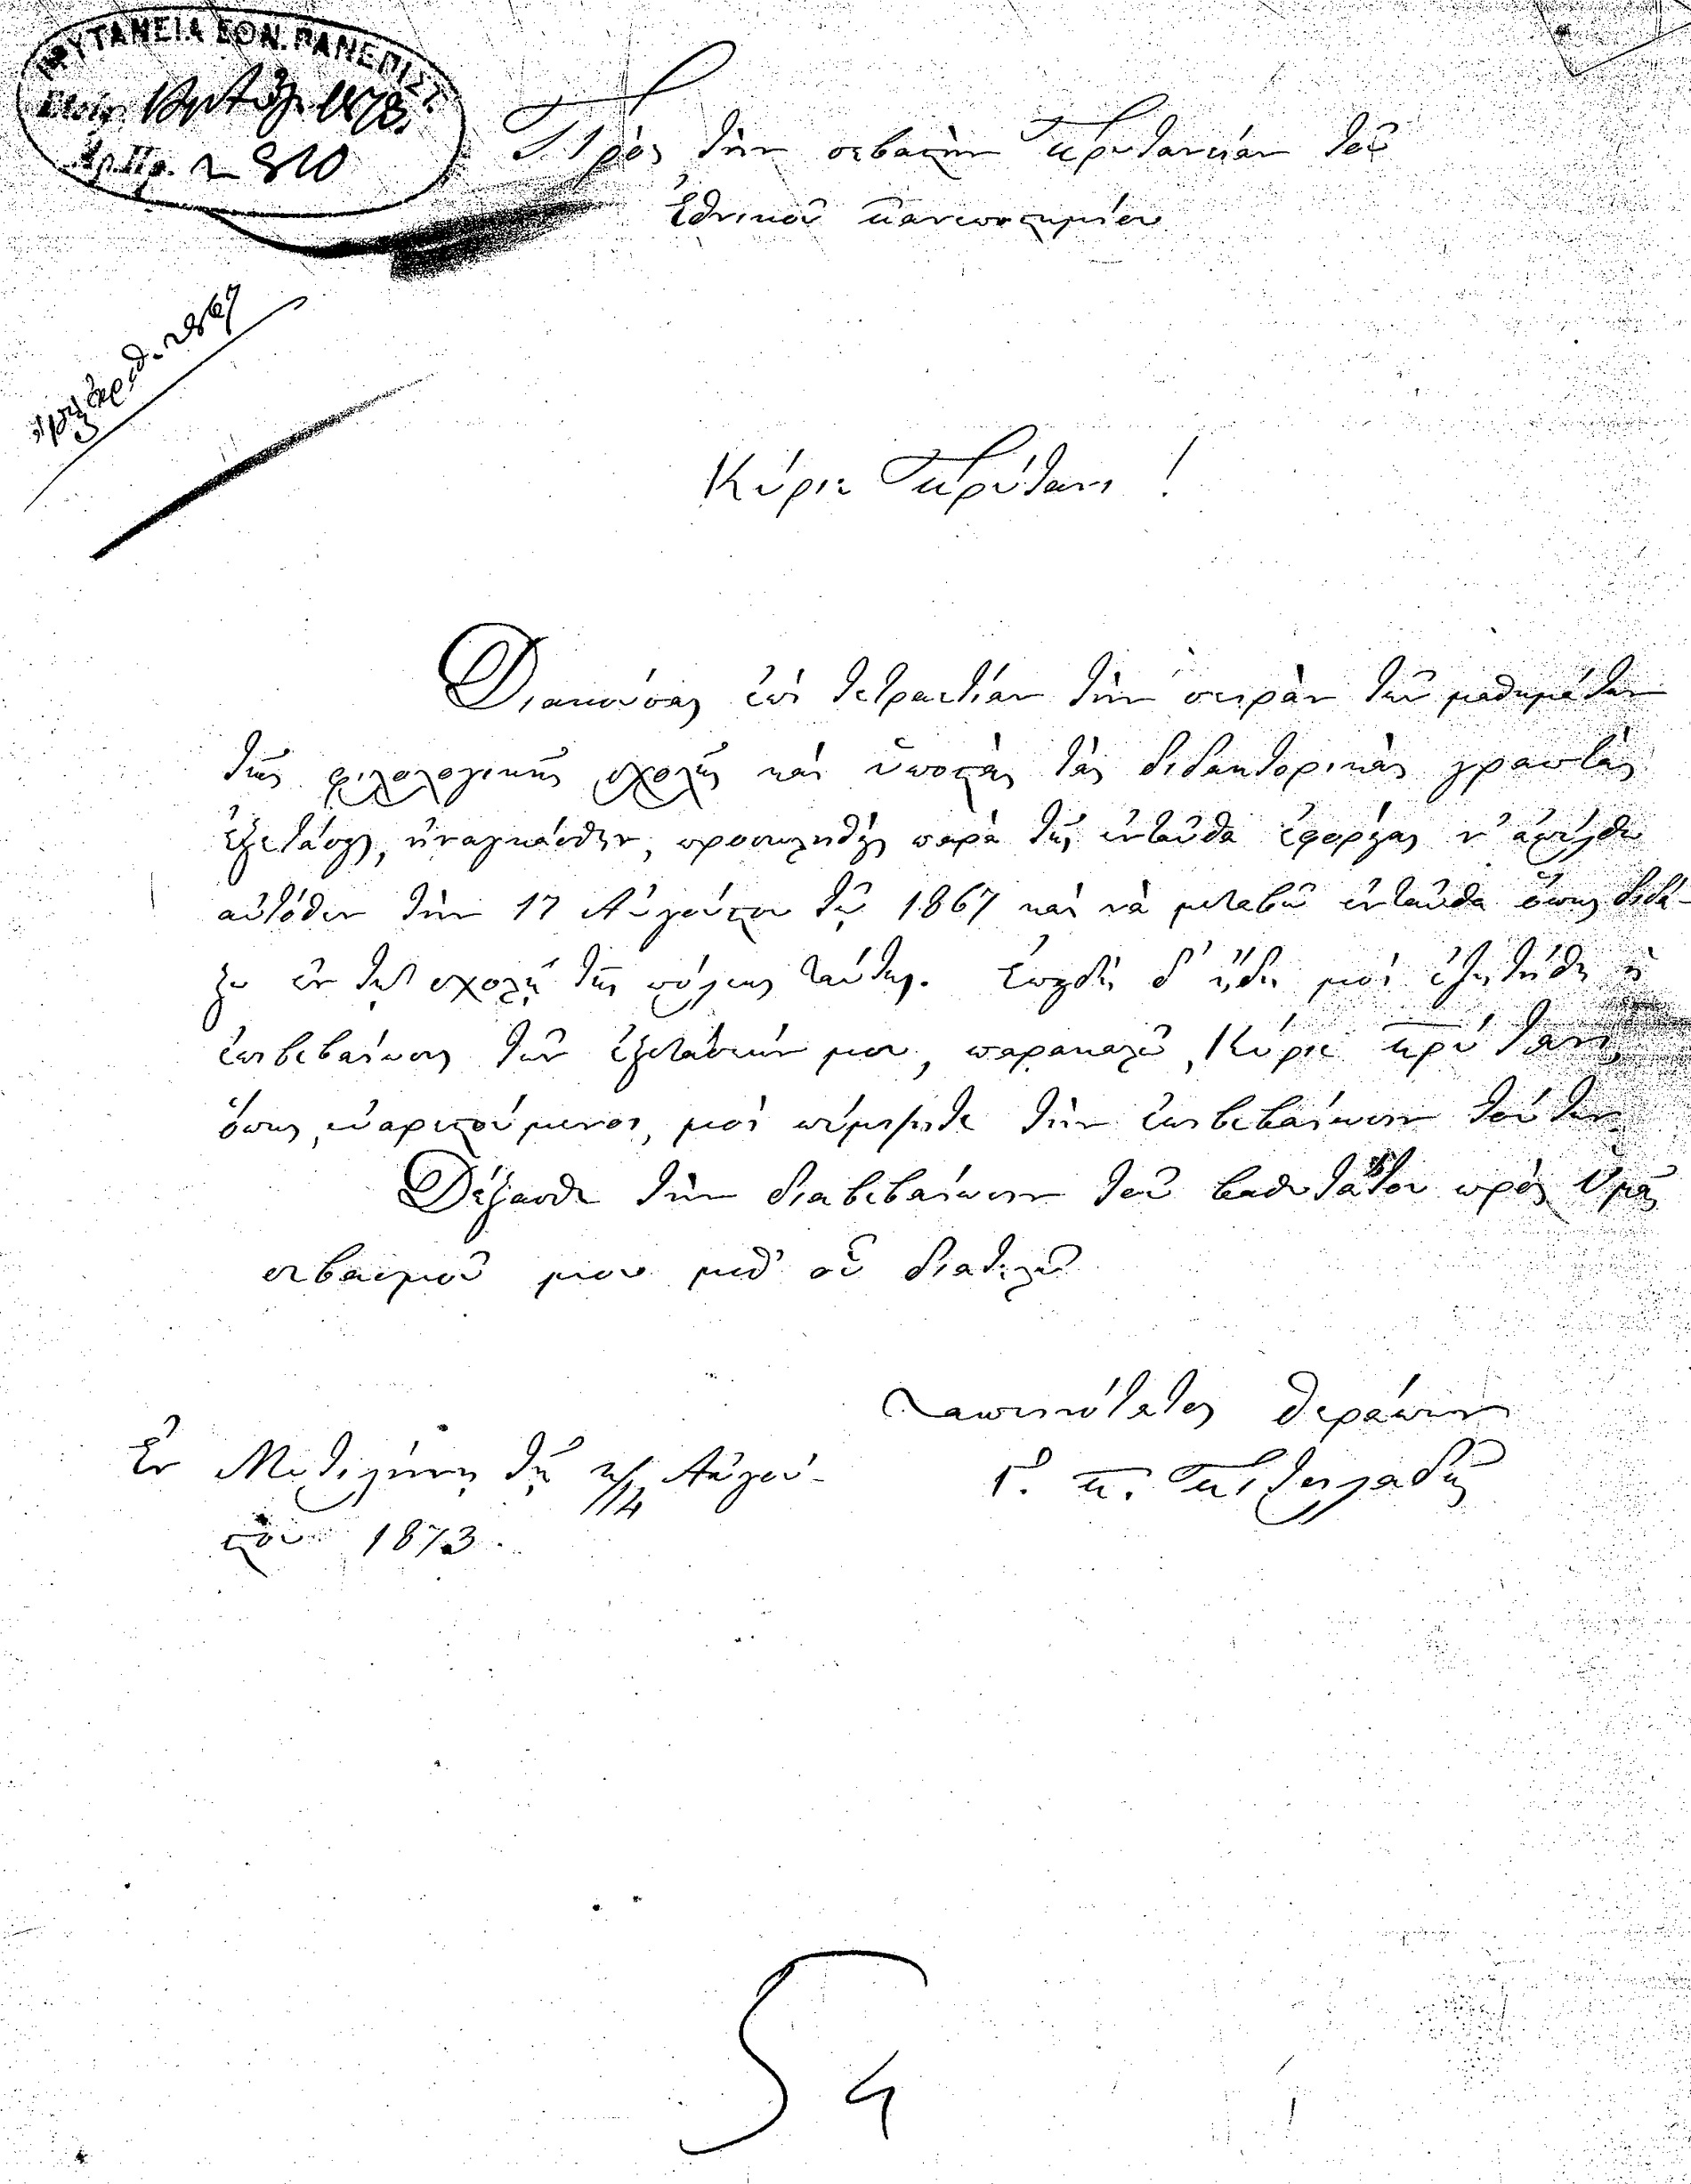 ΠΡΥΤΑΝΕΙΑ ΕΘΝ. ΠΑΝΕΠΙΣΤ.
1873
Αρ. Πρ. 2810
ἀριθ. 2867
Πρὸς τὴν σεβαστὴν Πρυτανείαν τοῦ
Ἐθνικοῦ Πανεπιστημίου
Κύριε Πρύτανι!
Διακούσας ἐπὶ τετραετίαν τὴν σειρὰν τῶν μαθημάτων
τῆς φιλολογικῆς σχολῆς καὶ ὑποστὰς τὰς διδακτορικὰς γραπτὰς
ἐξετάσεις, ἠναγκάσθην, προσκληθεὶς παρὰ τῆς ἐνταῦθα ἐφορείας ν' ἀπέλθω
αὐτόθεν τὴν 17 Αὐγούστου τοῦ 1867 καὶ νὰ μεταβῶ ἐνταῦθα ὅπως διδά-
ξω ἐν τῇ σχολῇ τῆς πόλεως ταύτης. Ἐπειδὴ δ' ἤδη μοὶ ἐζητήθη ἡ
ἐπιβεβαίωσις τῶν ἐξετάσεών μου, παρακαλῶ, Κύριε Πρύτανι,
ὅπως, εὐαρεστούμενος, μοὶ πέμψητε τὴν ἐπιβεβαίωσιν τούτων.
Δέξασθε τὴν διαβεβαίωσιν τοῦ βαθυτάτου πρὸς Ὑμᾶς
σεβασμοῦ μου μεθ' οὗ διατελῶ
Ταπεινότατος θεράπων
Γ. Π.
Ἐν Μυτιλήνῃ τῇ 14 Αὐγού-
στου 1873.
4